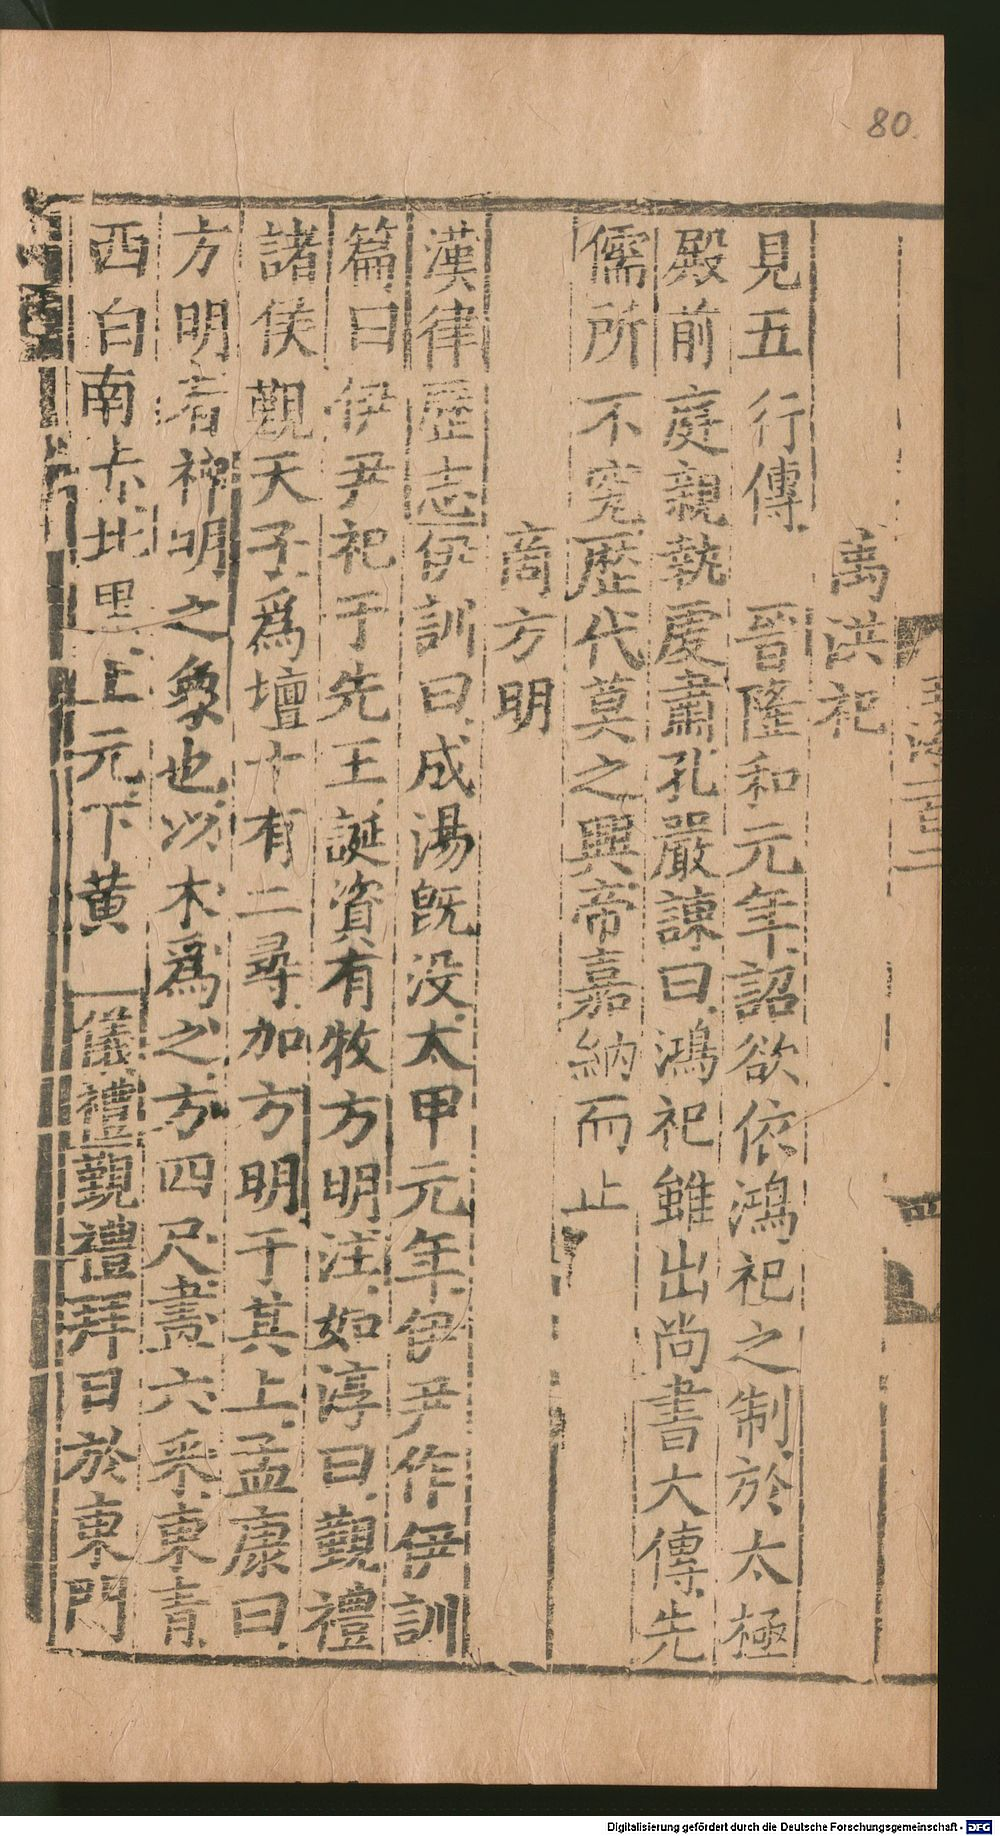 80.
萬洪祀
見五行傳 晉隆和元年詔欲依鴻祀之制於太極
殿前庭親執虔肅孔嚴諫曰鴻祀雖出尚書大傳先
儒所不究歷代莫之興帝嘉納而止
商方明
漢律歷志伊訓曰成湯旣没太甲元年伊尹作伊訓
篇曰伊尹祀于先王誕資有牧方明注如淳曰覲禮
諸侯覲天子爲壇十有二尋加方明于其上孟康曰
方明者神明之象也以木爲之方四尺畫六采東青
西白南赤北黑上元下黃 儀禮覲禮拜日於東門
Digitalisierung gefördert durch die Deutsche Forschungsgemeinschaft - DFG